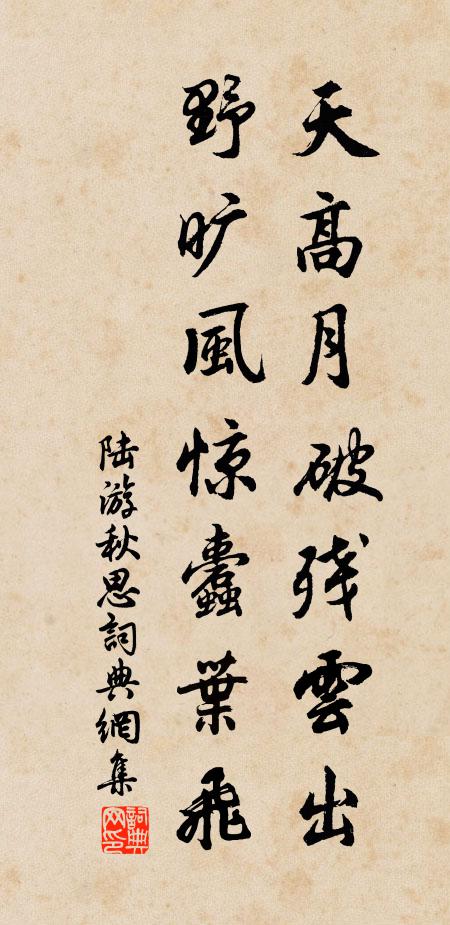 天高月破残雲出
野旷風惊蠹葉飛
陆游秋思詞典網集
詞典网印